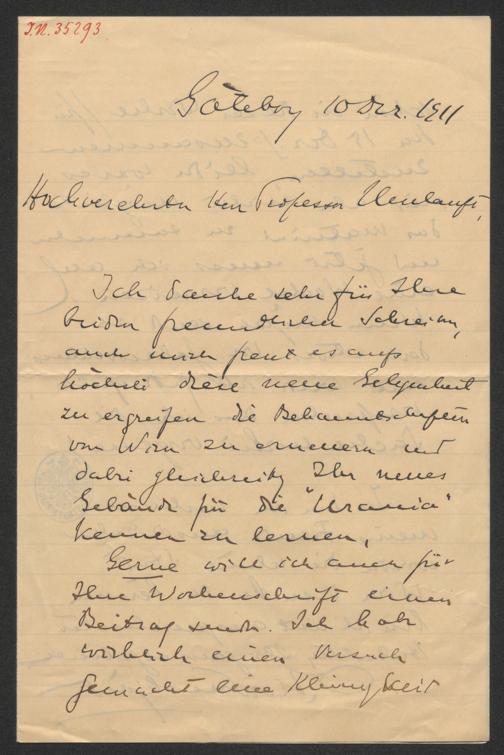 J.N. 35293
Göteborg 10 Dez. 1911
Hochverehrter Herr Professor Umlauft,
Ich danke sehr für Ihre
beiden freundlichen Schreiben,
auch mich freut es aufs
höchste diese neue Gelegenheit
zu ergreifen die Bekanntschaften
von Wien zu erneuern und
dabei gleichzeitig Ihr neues
Gebäude für die "Urania"
kennen zu lernen.
Gerne will ich auch für
Ihre Wochenschrift einen
Beitrag senden. Ich habe
wirklich einen Versuch
gemacht eine Kleinigkeit